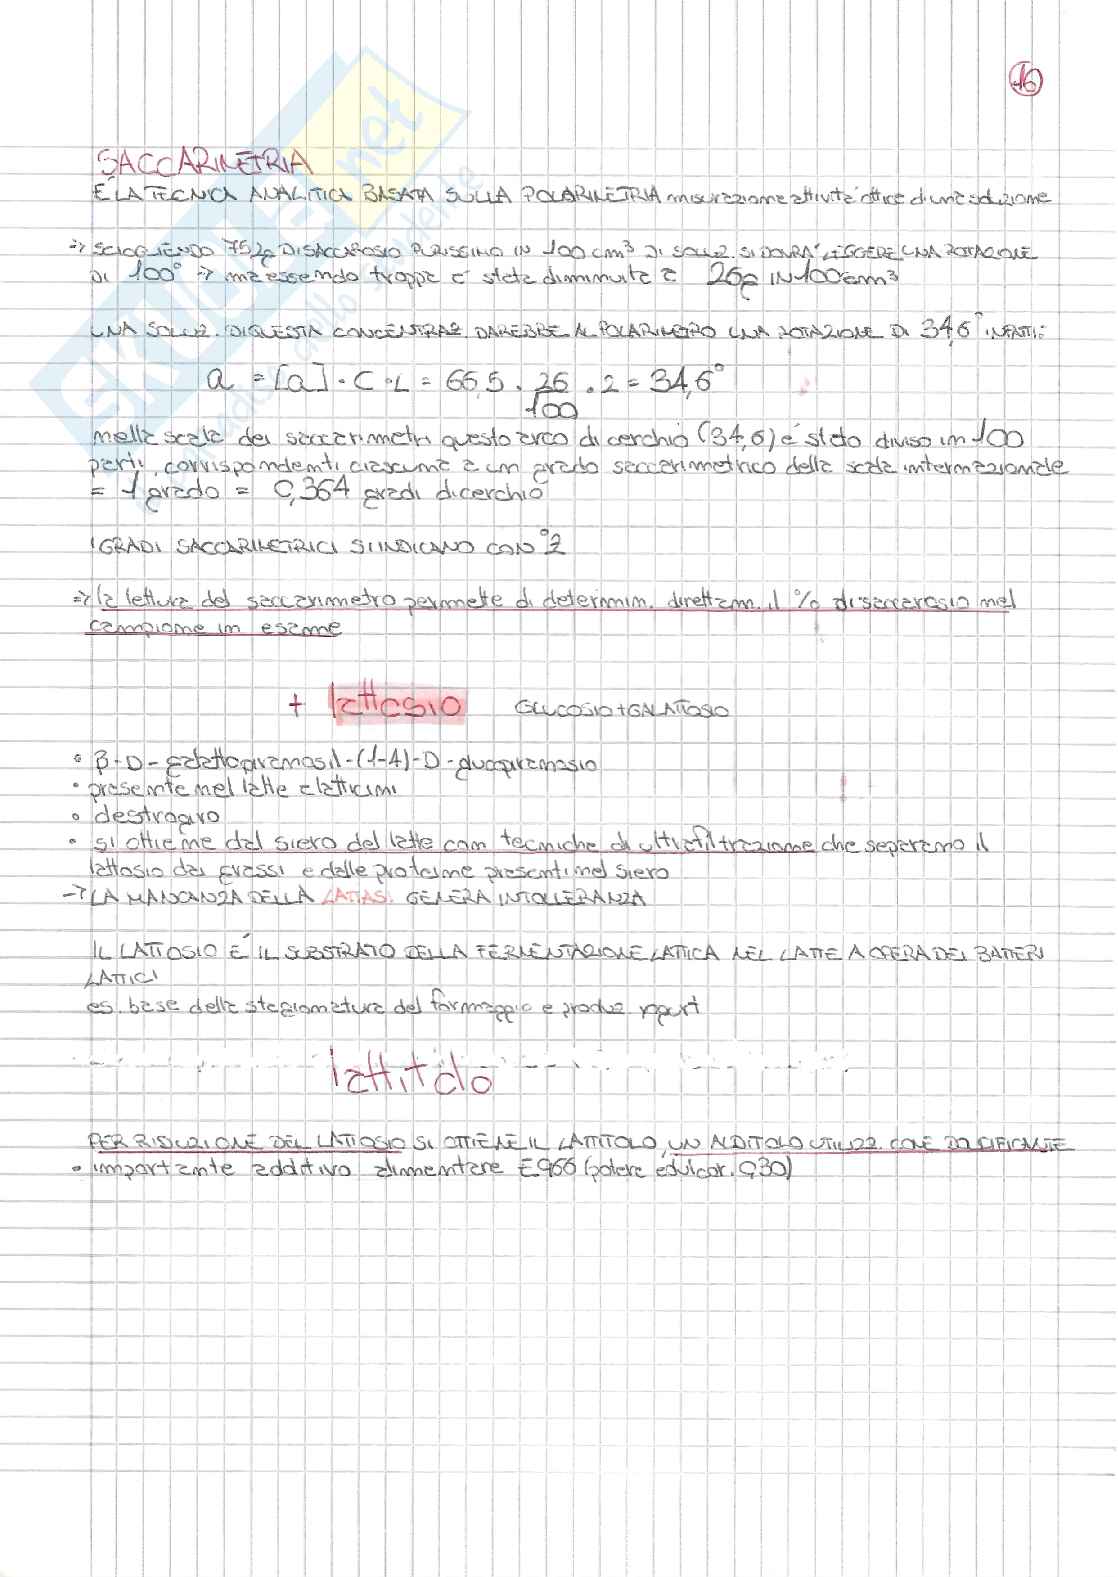 16
SACCARIMETRIA
È LA TECNICA ANALITICA BASATA SULLA POLARIMETRIA misurazione attività ottica di una soluzione
=> SCIOGLIENDO 75,2g DI SACCAROSIO PURISSIMO IN 100 cm³ DI SOLUZ. SI DOVRÀ LEGGERE UNA ROTAZIONE
DI 100° => ma essendo troppa è stata diminuita a 26g IN 100cm³
UNA SOLUZ. DI QUESTA CONCENTRAZ. DAREBBE AL POLARIMETRO UNA ROTAZIONE DI 34,6° INFATTI:
a = [a] · C · L = 66,5 · 26/100 · 2 = 34,6°
nella scala dei saccarimetri questo arco di cerchio (34,6) è stato diviso in 100
parti, corrispondenti ciascuna a un grado saccarimetrico della scala internazionale
= 1 grado = 0,364 gradi di cerchio
I GRADI SACCARIMETRICI SI INDICANO CON °Z
=> la lettura del saccarimetro permette di determin. direttam. il % di saccarosio nel
campione in esame
+ lattosio GLUCOSIO + GALATTOSIO
• β-D-galattopiranosil-(1-4)-D-glucopiranosio
• presente nel latte e latticini
• destrogiro
• si ottiene dal siero del latte con tecniche di ultrafiltrazione che separano il
lattosio dai grassi e dalle proteine presenti nel siero
-> LA MANCANZA DELLA LATTASI GENERA INTOLLERANZA
IL LATTOSIO È IL SUBSTRATO DELLA FERMENTAZIONE LATTICA NEL LATTE A OPERA DEI BATTERI
LATTICI
es. base della stagionatura del formaggio e produz. yogurt
lattitolo
PER RIDUZIONE DEL LATTOSIO SI OTTIENE IL LATTITOLO, UN ALDITOLO UTILIZZ. COME DOLCIFICANTE
• importante additivo alimentare E966 (potere edulcor. 0,30)
SKUOLA.net